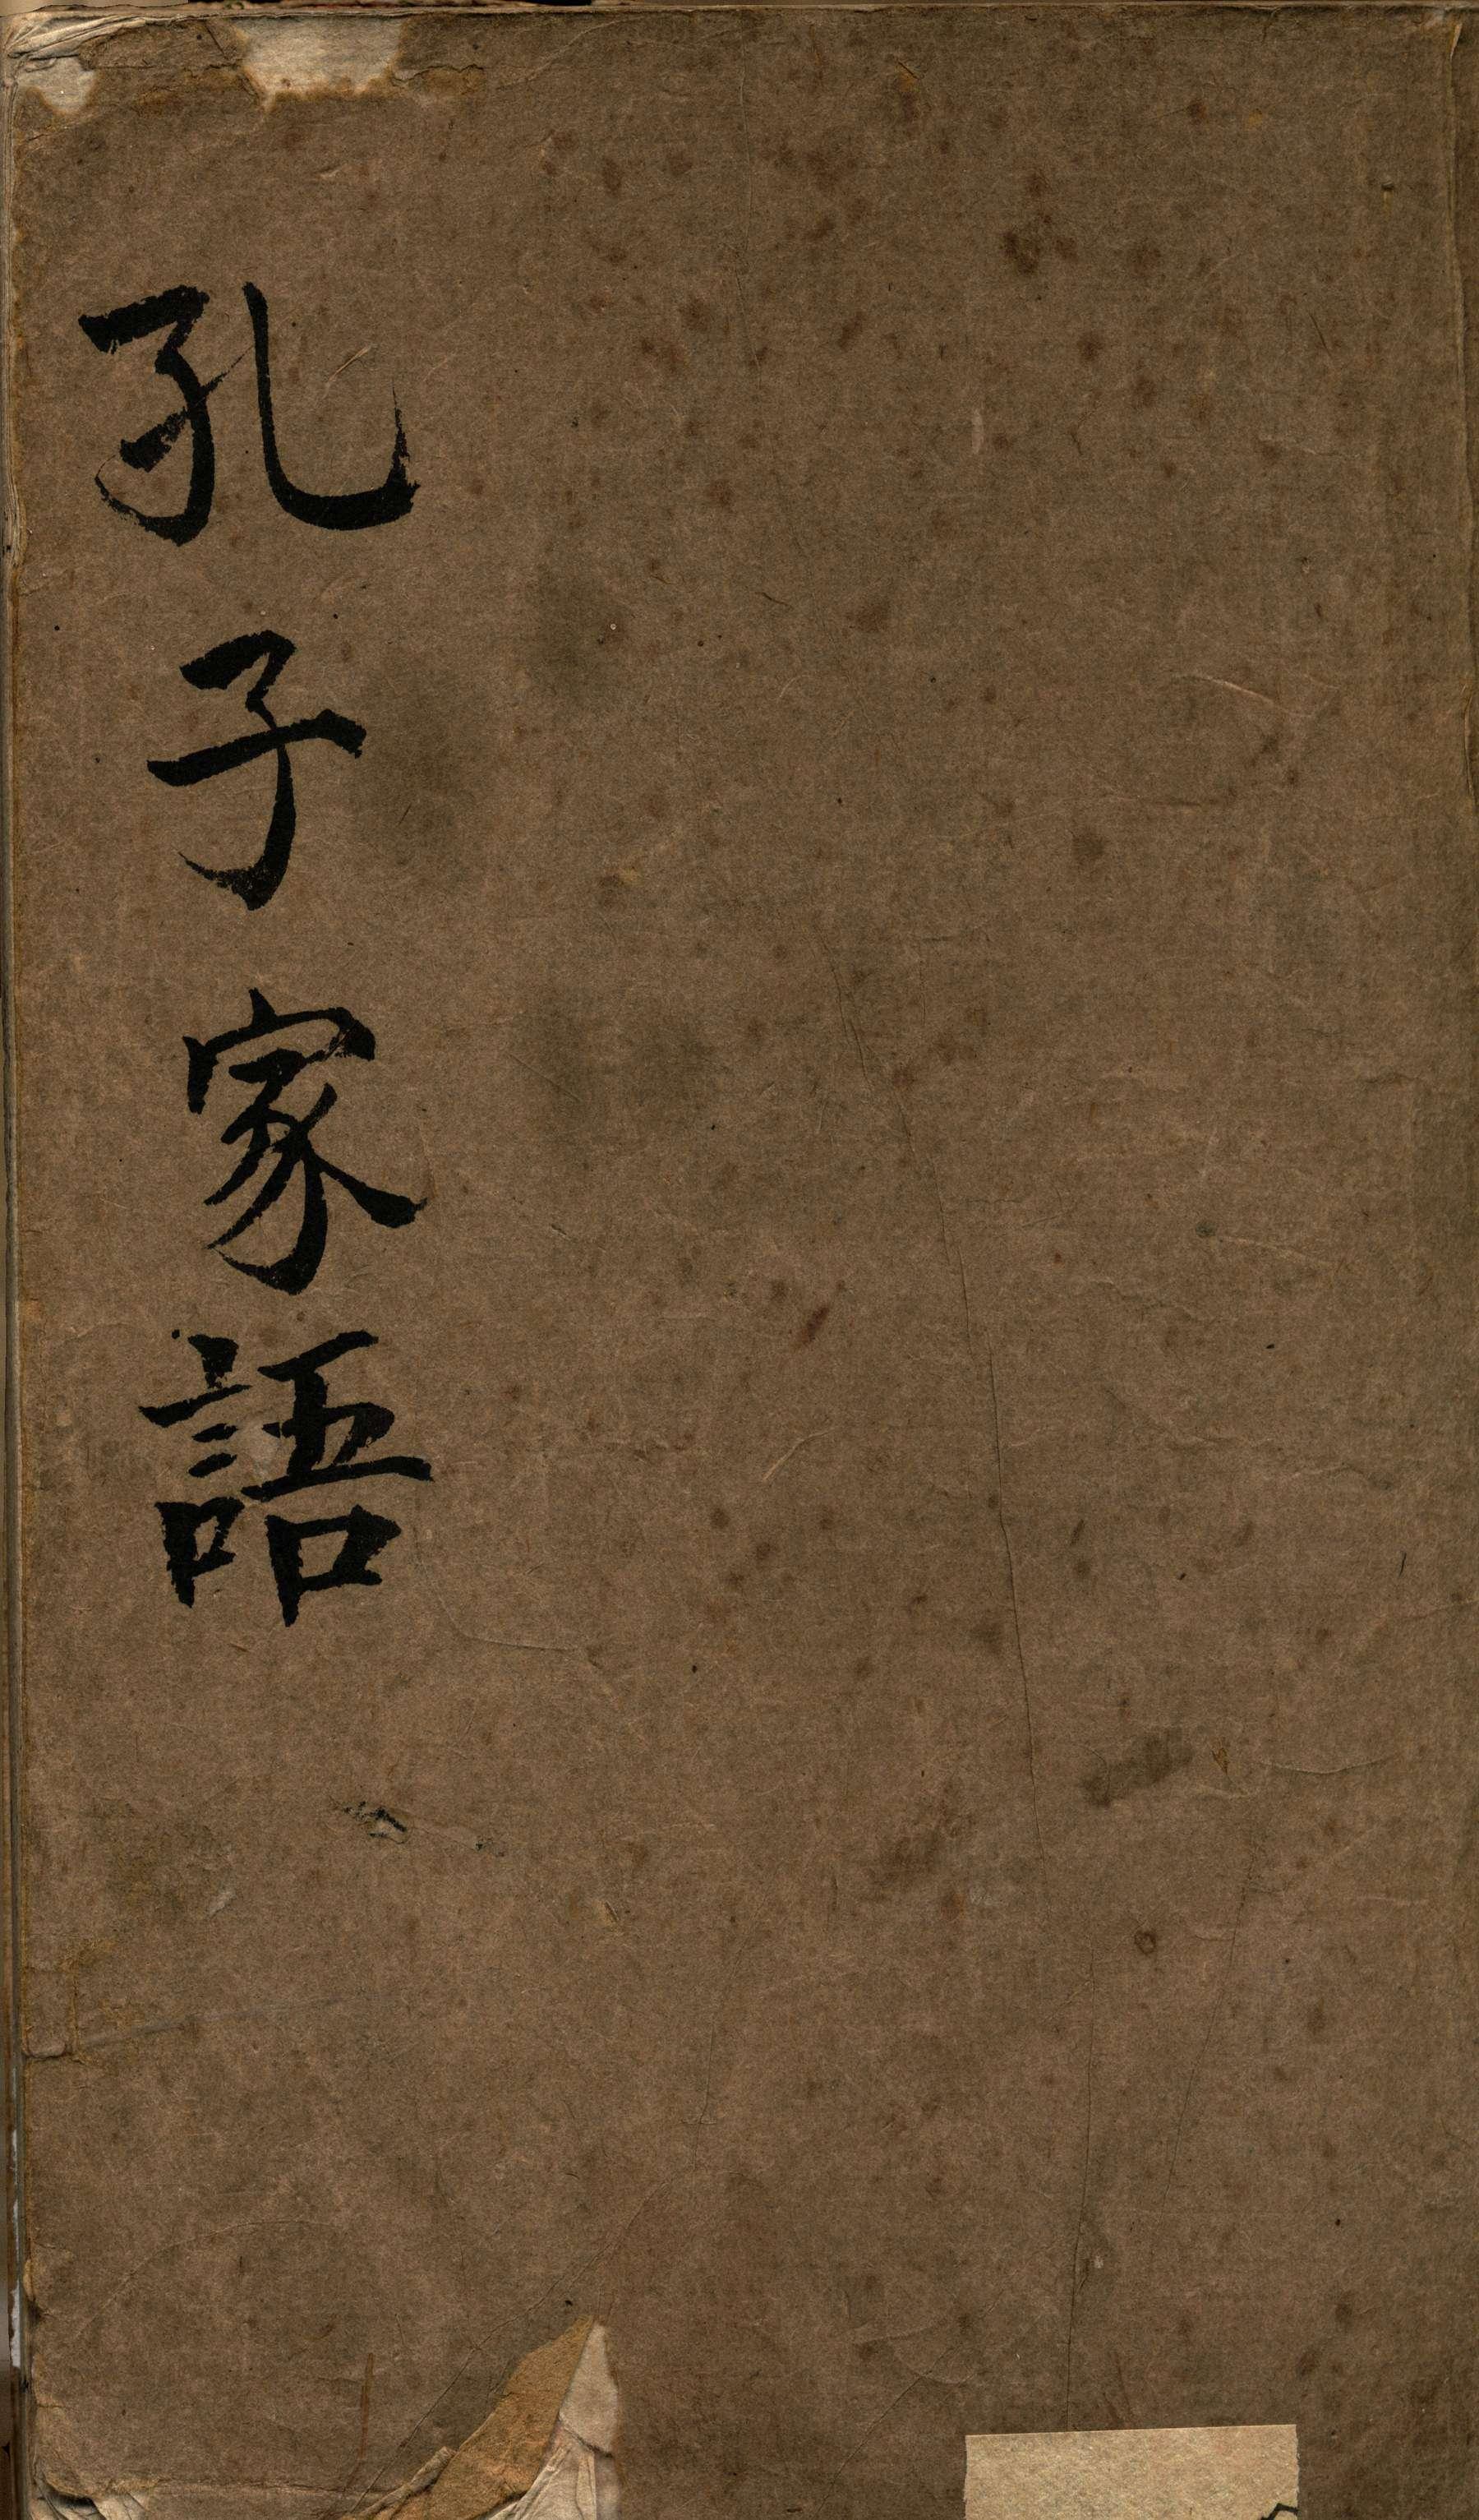 孔子家語